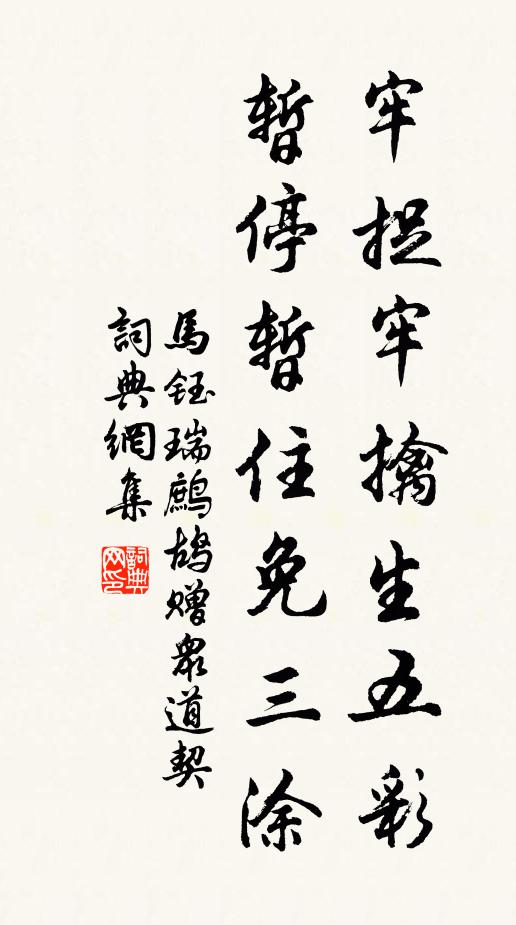 牢捉牢擒生五彩
暫停暫住免三涂
馬鈺瑞鷓鴣贈衆道契
詞典網集
詞典网印